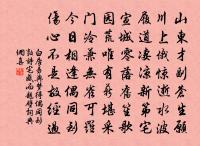 山東才副蒼生願
川上俄驚逝水波
履道凄涼新第宅
宣城零落舊笙歌
園荒唯有薪堪采
門冷兼無雀可羅
今日相逢偶同到
傷心不是故經過
白居易與夢得偶同到
敦詩宅感而題壁詞典
網喜